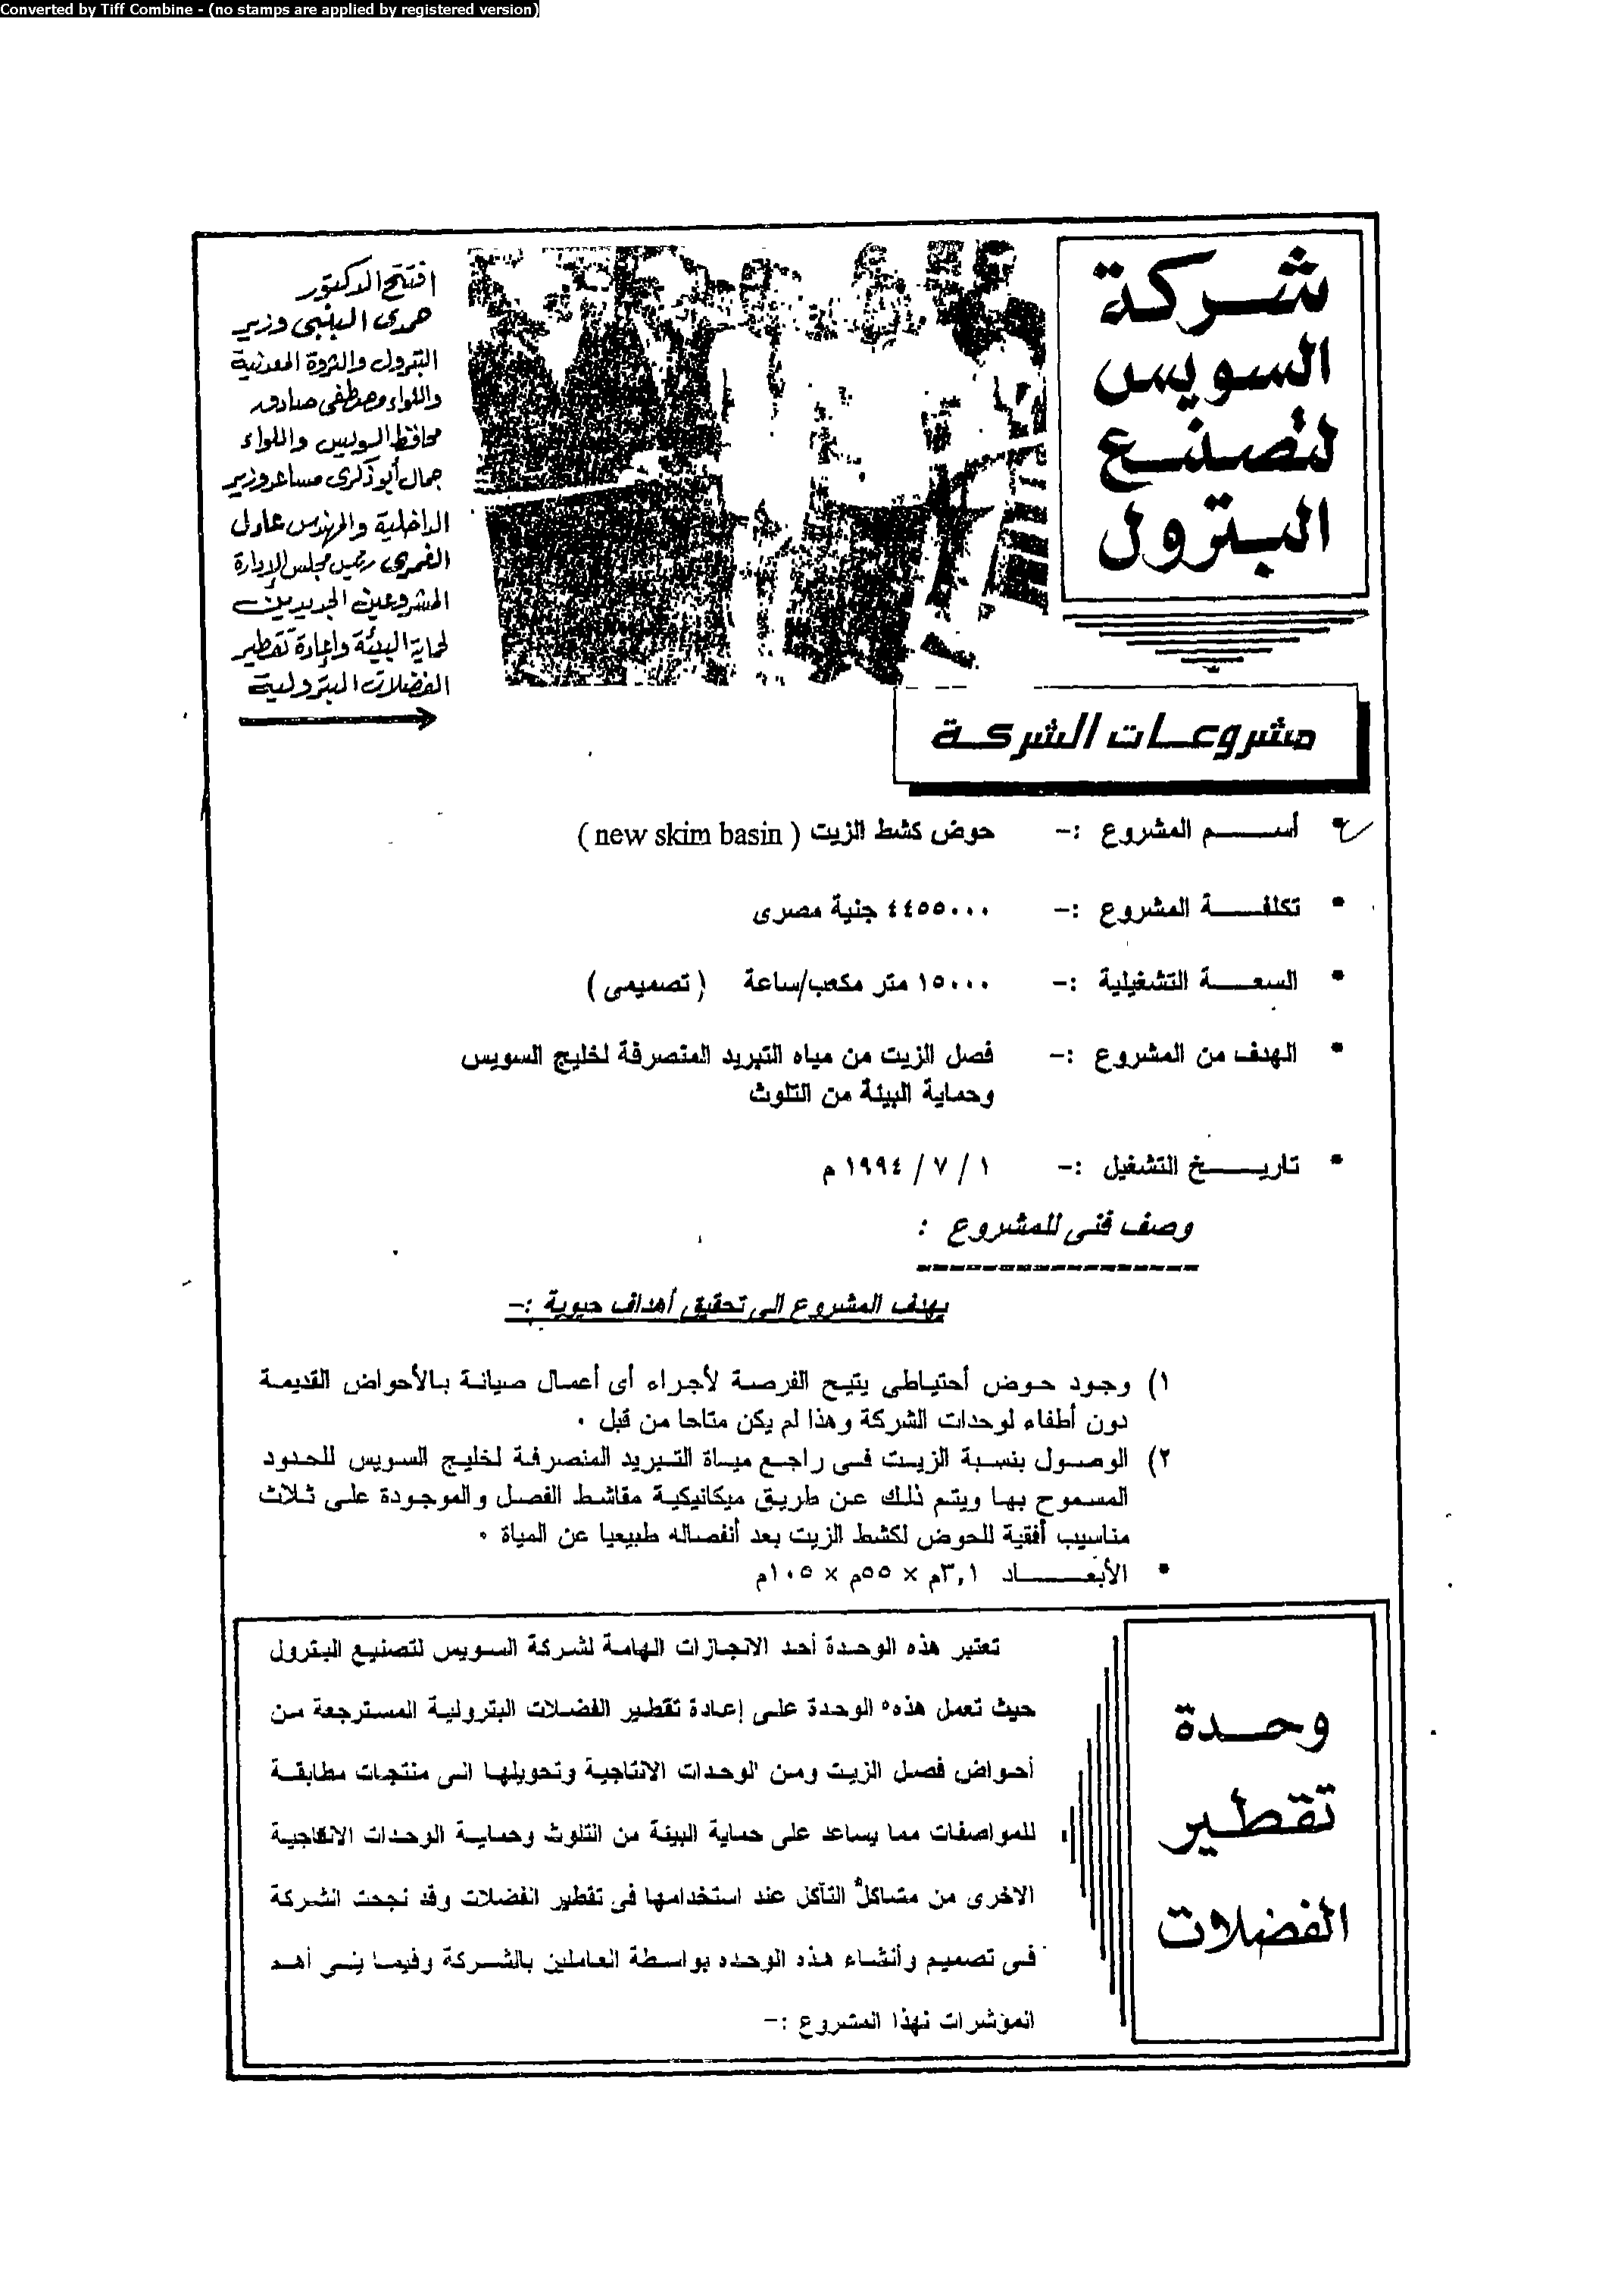 Converted by Tiff Combine - (no stamps are applied by registered version)
شركة
السويس
لتصنيع
البترول
افتتح الدكتور
حمدى البنبى وزير
البترول والثروة المعدنية
واللواء مصطفى صادق
محافظ السويس واللواء
جمال أبو ذكرى مساعد وزير
الداخلية والمهندس عادل
الغمرى رئيس مجلس الإدارة
المشروعين الجديدين
لحماية البيئة وإعادة تقطير
الفضلات البترولية
مشروعات الشركة
• أسم المشروع :- حوض كشط الزيت ( new skim basin )
• تكلفة المشروع :- ٤٤٥٥٠٠٠ جنية مصرى
• السعة التشغيلية :- ١٥٠٠٠ متر مكعب/ساعة ( تصميمى )
• الهدف من المشروع :- فصل الزيت من مياه التبريد المتصرفة لخليج السويس
وحماية البيئة من التلوث
• تاريخ التشغيل :- ١ / ٧ / ١٩٩٤ م
وصف فنى للمشروع :
يهدف المشروع الى تحقيق أهداف حيوية :-
١) وجود حوض أحتياطى يتيح الفرصة لأجراء أى أعمال صيانة بالأحواض القديمة
دون أطفاء لوحدات الشركة وهذا لم يكن متاحا من قبل ٠
٢) الوصول بنسبة الزيت فى راجع مياة التبريد المنصرفة لخليج السويس للحدود
المسموح بها ويتم ذلك عن طريق ميكانيكية مقاشط الفصل والموجودة على ثلاث
مناسيب أفقية للحوض لكشط الزيت بعد أنفصاله طبيعيا عن المياة ٠
• الأبعاد ٣,١م × ٥٥م × ١٠٥م
وحدة
تقطير
الفضلات
تعتبر هذه الوحدة أحد الانجازات الهامة لشركة السويس لتصنيع البترول
حيث تعمل هذه الوحدة على إعادة تقطير الفضلات البترولية المسترجعة من
أحواض فصل الزيت ومن الوحدات الانتاجية وتحويلها الى منتجات مطابقة
للمواصفات مما يساعد على حماية البيئة من التلوث وحماية الوحدات الانتاجية
الاخرى من مشاكل التأكل عند استخدامها فى تقطير الفضلات وقد نجحت الشركة
فى تصميم وأنشاء هذه الوحده بواسطة العاملين بالشركة وفيما يلى أهم
المؤشرات لهذا المشروع :-